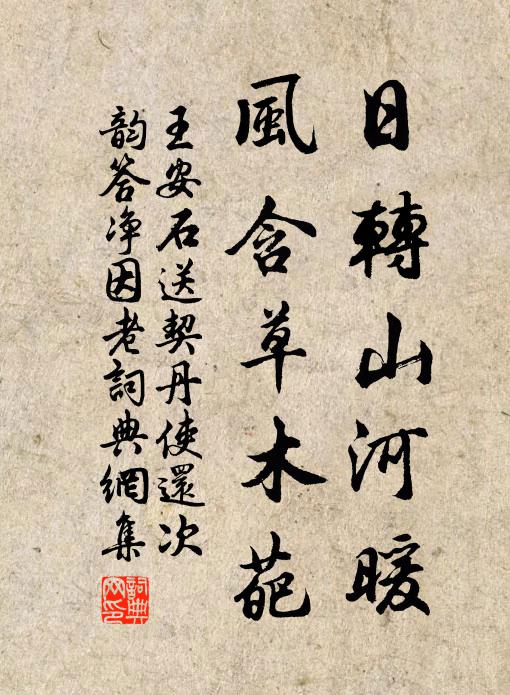 日轉山河暖
風含草木葩
王安石送契丹使還次
韵答净因老詞典網集
詞典